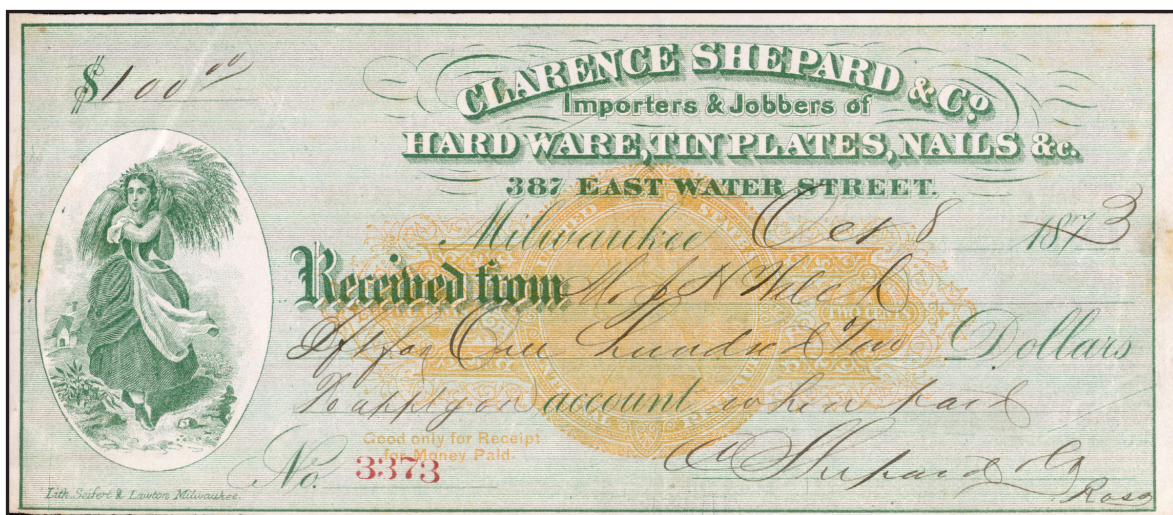 $100 00
CLARENCE SHEPARD & Co
Importers & Jobbers of
HARDWARE, TIN PLATES, NAILS &c.
387 EAST WATER STREET.
Milwaukee Oct 8 1873
Received from
TWO CENTS
for One hundred Dollars
To apply on account when paid
Good only for Receipt
for Money Paid.
No. 3373
C Shepard & Co
Ross
Lith. Seifert & Lawton Milwaukee.